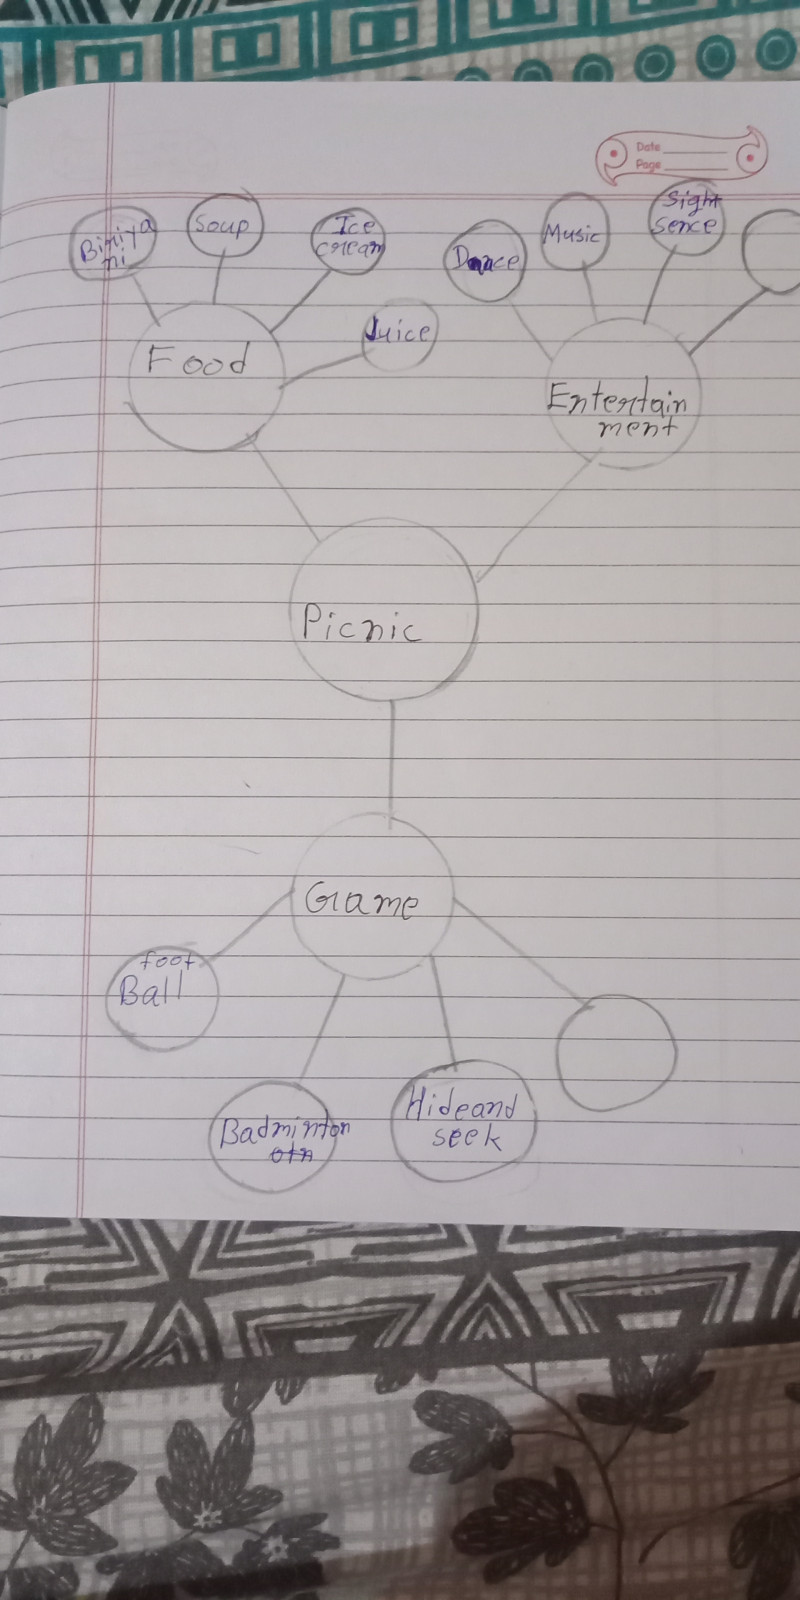 Date
Page
Biriya
ni
Soup
Ice
cream
Juice
Food
Dance
Music
Sight
sence
Entertain
ment
Picnic
Game
foot
Ball
Badminton
otn
Hideand
seek